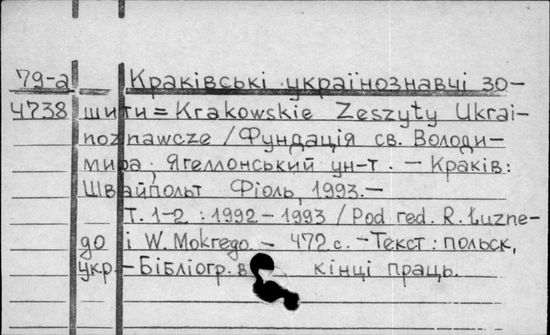 79-а Краківські українознавчі зо-
4738 шити = Krakowskie Zeszyty Ukrai-
noznawcze / Фундація св. Володи-
мира; Ягеллонський ун-т. - Краків:
Швайпольт Фіоль, 1993.-
Т. 1-2 : 1992-1993 / Pod red. R. Łuzne-
go i W. Mokrego. - 472 с. - Текст: польск,
укр.- Бібліогр. в кінці праць.